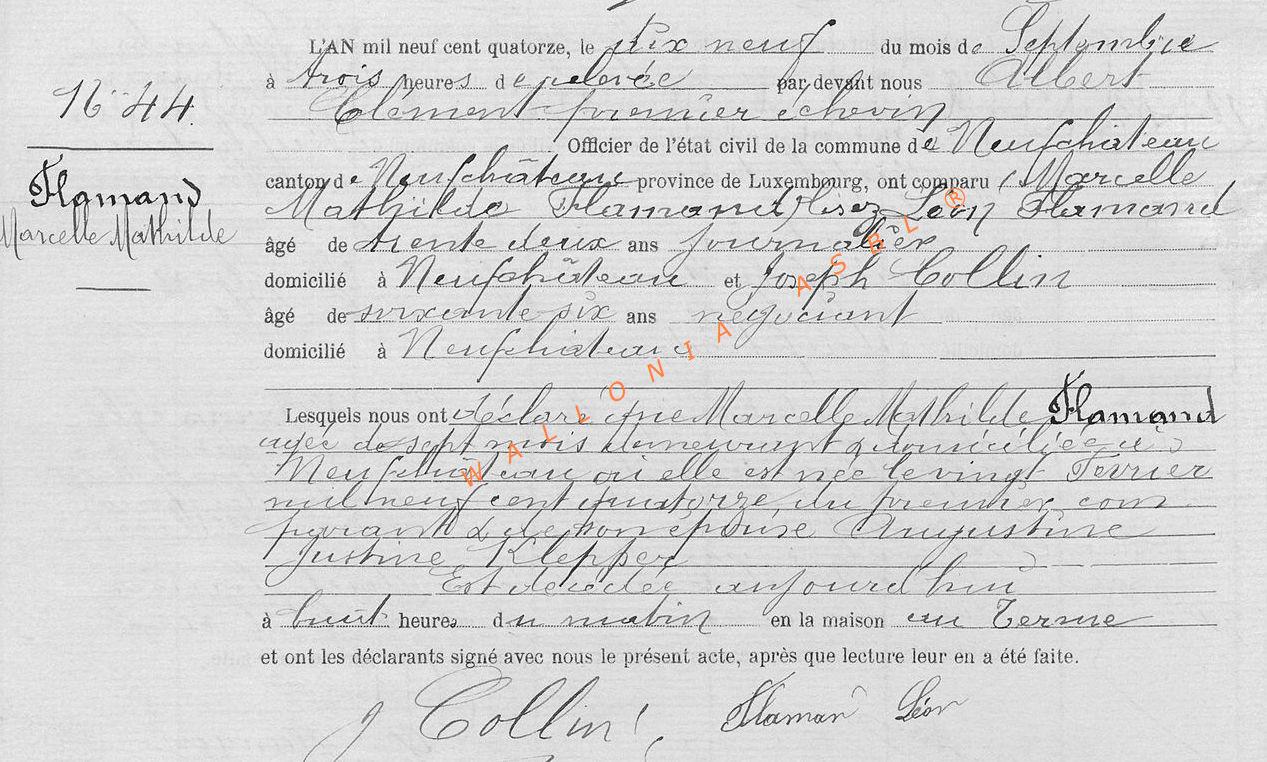 L'AN mil neuf cent quatorze, le dix neuf du mois de Septembre
à trois heures de relevée par devant nous Albert
Clement premier échevin
N° 44.
Officier de l'état civil de la commune de Neufchâteau
canton de Neufchâteau province de Luxembourg, ont comparu Marcelle
Flamand
Marcelle Mathilde
Mathilde Flamand lisez Léon Flamand
âgé de trente deux ans journalier
domicilié à Neufchâteau et Joseph Collin
âgé de soixante six ans négociant
domicilié à Neufchâteau
WALLONIA ASBL ®
Lesquels nous ont déclaré que Marcelle Mathilde Flamand
agée de sept mois demeurant & domiciliée à
Neufchâteau où elle est née le vingt Fevrier
mil neuf cent quatorze, du premier com
parant & de son épouse Augustine
Justine Klepper
Est décédée aujourd'hui
à huit heures du matin en la maison au Terme
et ont les déclarants signé avec nous le présent acte, après que lecture leur en a été faite.
J Collin Flaman Léon